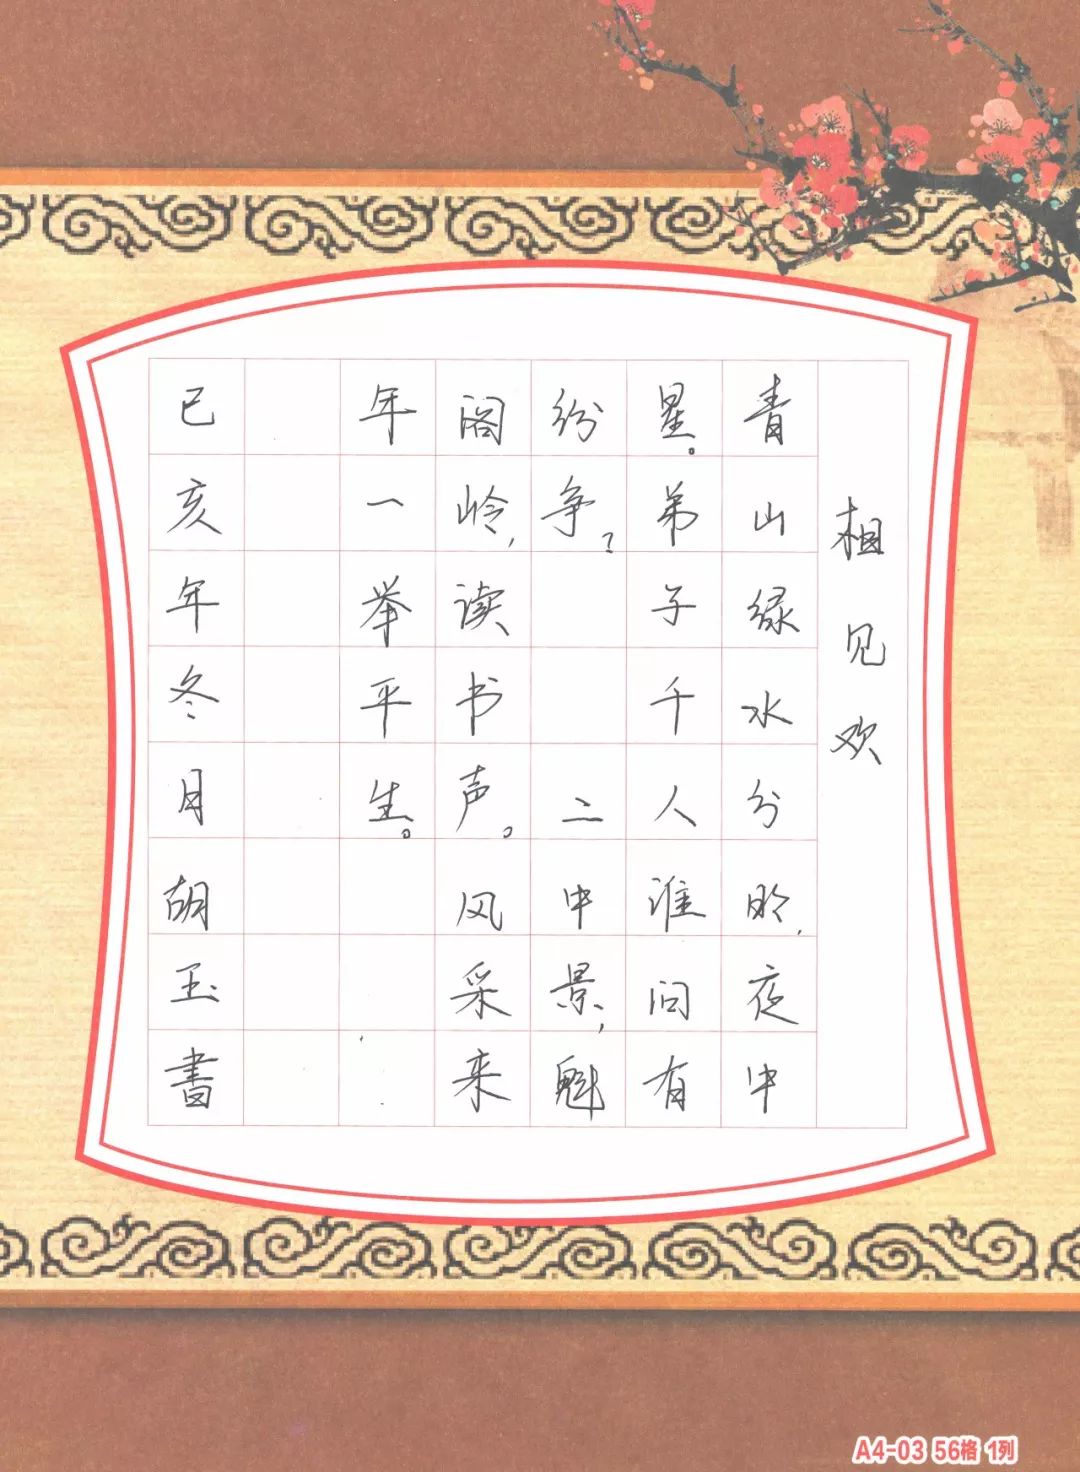 相见欢
青山绿水分明,夜中
星。弟子千人谁问有
纷争?二中景,魁
阁岭,读书声。风采来
年一举平生。
己亥年冬月胡玉书
A4-03 56格 1列